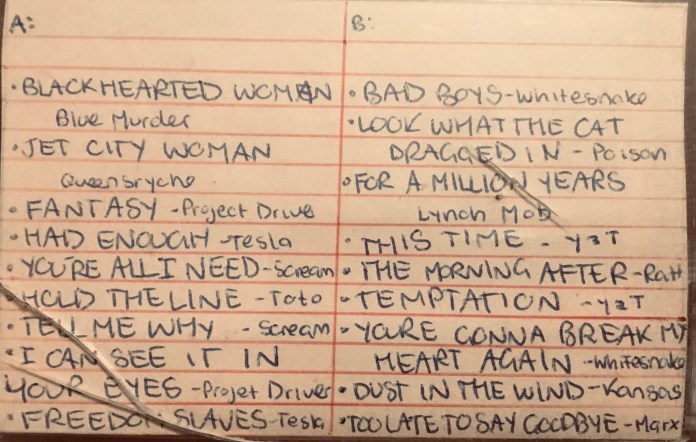 A:
• BLACKHEARTED WOMAN
Blue Murder
• JET CITY WOMAN
Queensryche
• FANTASY - Project Driver
• HAD ENOUGH - Tesla
• YOU'RE ALL I NEED - Scream
• HOLD THE LINE - Toto
• TELL ME WHY - Scream
• I CAN SEE IT IN
YOUR EYES - Projet Driver
• FREEDOM SLAVES - Tesla
B:
• BAD BOYS - Whitesnake
• LOOK WHAT THE CAT
DRAGGED IN - Poison
• FOR A MILLION YEARS
Lynch Mob
• THIS TIME - Y&T
• THE MORNING AFTER - Ratt
• TEMPTATION - Y&T
• YOURE GONNA BREAK MY
HEART AGAIN - Whitesnake
• DUST IN THE WIND - Kansas
• TOO LATE TO SAY GOODBYE - Marx